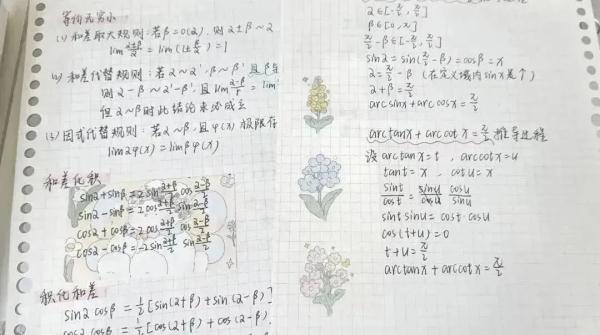 等价无穷小
(1) 和差取大规则：若β=o(α)，则α±β~α
lim (α±β)/α = lim(1±β/α)=1
(2) 和差代替规则：若α~α'，β~β'且β与
则α-β~α'-β'，且lim (α-β)/ = lim
但α~β时此结论未必成立
(3) 因式代替规则：若α~β，且φ(x)极限存
limαφ(x)=limβφ(x)
和差化积
sinα+sinβ=2sin (α+β)/2 cos (α-β)/2
sinα-sinβ=2cos (α+β)/2 sin (α-β)/2
cosα+cosβ=2cos (α+β)/2 cos (α-β)/2
cosα-cosβ=-2sin (α+β)/2 sin (α-β)/2
积化和差
sinα cosβ = 1/2 [sin(α+β)+sin(α-β)]
cosα cosβ = 1/2 [cos(α+β)+cos(α-β)
α∈[-π/2, π/2]
β∈[0, π]
π/2-β∈[-π/2, π/2]
sinα=sin(π/2-β)=cosβ=x
α=π/2-β (在定义域内sinx是个)
α+β=π/2
arcsinx+arccosx=π/2
arctanx+arccotx=π/2 推导过程
设arctanx=t，arccotx=u
tant=x，cotu=x
sint/cost = cosu/sinu
sintsinu=cost·cosu
cos(t+u)=0
t+u=π/2
arctanx+arccotx=π/2